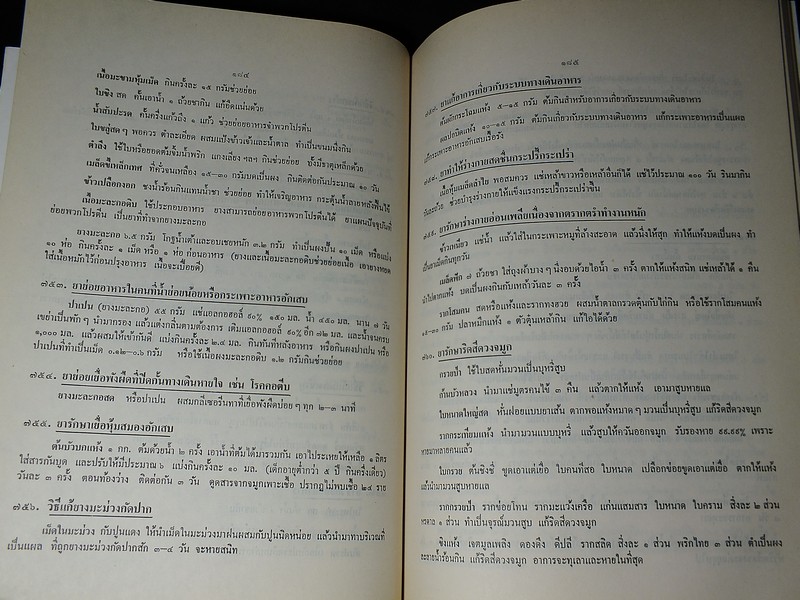 ๑๘๔
เนื้อมะขามหุ้มเม็ด กินครั้งละ ๑๕ กรัมช่วยย่อย
ใบขิง สด คั้นเอาน้ำ ๑ ถ้วยชากิน แก้อืดแน่นด้วย
น้ำสับปะรด คั้นครึ่งแก้วถึง ๑ แก้ว ช่วยย่อยอาหารจำพวกโปรตีน
ใบขลู่สด ๆ พอควร ตำละเอียด ผสมแป้งข้าวเจ้าและน้ำตาล ทำเป็นขนมนึ่งกิน
ตำลึง ใช้ใบหรือยอดต้มจิ้มน้ำพริก แกงเลียง ฯลฯ กินช่วยย่อย ทั้งมีธาตุเหล็กด้วย
เมล็ดขี้เหล็กเทศ ที่คั่วจนเหลือง ๑๕–๓๐ กรัมบดเป็นผง กินติดต่อกันประมาณ ๑๐ วัน
ข้าวเปลือกงอก ชงน้ำร้อนกินแทนน้ำชา ช่วยย่อย ทำให้เจริญอาหาร กระตุ้นน้ำลายหลั่งฟื้นไข้
เนื้อมะละกอดิบ ใช้ประกอบอาหาร ยางสามารถย่อยอาหารพวกโปรตีนได้ ยาแผนปัจจุบันที่
ย่อยพวกโปรตีน เป็นยาที่ทำจากยางมะละกอ
ยางมะละกอ ๖.๕ กรัม โกฐน้ำเต้าและอบเชยหนัก ๓.๒ กรัม ทำเป็นผงปั้น ๑๐ เม็ด หรือแบ่ง
๑๐ ห่อ กินครั้งละ ๑ เม็ด หรือ ๑ ห่อ ก่อนอาหาร (ยางและเนื้อมะละกอดิบช่วยย่อยเนื้อ เอายางหยด
ใส่เนื้อหมักไว้ก่อนปรุงอาหาร เนื้อจะเปื่อยดี)
๗๕๓. ยาย่อยอาหารในคนที่น้ำย่อยน้อยหรือกระเพาะอาหารอักเสบ
ปาเปน (ยางมะละกอ) ๕๕ กรัม แช่แอลกอฮอล์ ๙๐% ๑๕๐ มล. น้ำ ๔๕๐ มล. นาน ๗ วัน
เขย่าเป็นพัก ๆ นำมากรอง แล้วแต่งกลิ่นตามต้องการ เติมแอลกอฮอล์ ๙๐% อีก ๗๒ มล. และน้ำจนครบ
๑,๐๐๐ มล. แล้วผสมให้เข้ากันดี แบ่งกินครั้งละ ๒.๔ มล. กินทันทีหลังอาหาร หรือกินผงปาเปน หรือ
ปาเปนที่ทำเป็นเม็ด ๐.๑๒–๐.๖ กรัม หรือใช้เนื้อผงมะละกอดิบ ๑.๒ กรัมกินช่วยย่อย
๗๕๔. ยาย่อยเยื่อพังผืดที่ปิดกั้นทางเดินหายใจ เช่น โรคคอตีบ
ยางมะละกอสด หรือปาเปน ผสมกลีเซอรีนทาที่เยื่อพังผืดบ่อย ๆ ทุก ๒–๓ นาที
๗๕๕. ยารักษาเยื่อหุ้มสมองอักเสบ
ต้นบัวบกแห้ง ๑ กก. ต้มด้วยน้ำ ๒ ครั้ง เอาน้ำที่ต้มได้มารวมกัน เอาไประเหยให้เหลือ ๑ ลิตร
ใส่สารกันบูด และปรับให้มีประมาณ ๖ แบ่งกินครั้งละ ๑๐ มล. (เด็กอายุต่ำกว่า ๕ ปี กินครึ่งเดียว)
วันละ ๓ ครั้ง ตอนท้องว่าง ติดต่อกัน ๓ วัน ดูดสารจากจมูกเพาะเชื้อ ปรากฏไม่พบเชื้อ ๒๔ ราย
๗๕๖. วิธีแก้ยางมะม่วงกัดปาก
เม็ดในมะม่วง กับปูนแดง ให้นำเม็ดในมะม่วงมาฝนผสมกับปูนนิดหน่อย แล้วนำมาทาบริเวณที่
เป็นแผล ที่ถูกยางมะม่วงกัดปากสัก ๓–๔ วัน จะหายสนิท
๑๘๕
๗๕๗. ยาแก้อาการเกี่ยวกับระบบทางเดินอาหาร
ต้นผักกระโฉมแห้ง ๕–๑๕ กรัม ต้มกินสำหรับอาการเกี่ยวกับระบบทางเดินอาหาร
ผลปอบิดแห้ง ๑๐–๑๕ กรัม ต้มกินเกี่ยวกับระบบทางเดินอาหาร แก้กระเพาะอาหารเป็นแผล
แก้กระเพาะอาหารอักเสบเรื้อรัง
๗๕๘. ยาทำให้ร่างกายสดชื่นกระปรี้กระเปร่า
เนื้อหุ้มเมล็ดลำไย พอสมควร แช่เหล้าขาวหรือเหล้าอื่นก็ได้ แช่ไว้ประมาณ ๑๐๐ วัน รินมากิน
วันละถ้วย ช่วยบำรุงร่างกายให้แข็งแรงกระปรี้กระเปร่าขึ้น
๗๕๙. ยารักษาร่างกายอ่อนเพลียเนื่องจากตรากตรำทำงานหนัก
ข้าวเหนียว แช่น้ำ แล้วใส่ในกระเพาะหมูที่ล้างสะอาด แล้วนึ่งให้สุก ทำให้แห้งบดเป็นผง ทำ
เป็นยาเม็ดกินทุกวัน
เมล็ดพืก ๗ ถ้วยชา ใส่ถุงผ้าบาง ๆ นึ่งอบด้วยไอน้ำ ๓ ครั้ง ตากให้แห้งสนิท แช่เหล้าได้ ๑ คืน
นำไปตากแห้ง บดเป็นผงกินกับเหล้าวันละ ๓ ครั้ง
รากโสมคน สดหรือแห้งและรากทงฮวย ผสมน้ำตาลกรวดตุ๋นกับไก่กิน หรือใช้รากโสมคนแห้ง
๑๕–๓๐ กรัม ปลาหมึกแห้ง ๑ ตัวตุ๋นเหล้ากิน แก้ไอได้ด้วย
๗๖๐. ยารักษาริดสีดวงจมูก
กรายป่า ใช้ใบสดหั่นมวนเป็นบุหรี่สูบ
ก้นบัวหลวง นำมาแช่มูตรคนใช้ ๓ คืน แล้วตากให้แห้ง เอามาสูบหายแล
ใบหนาดใหญ่สด หั่นฝอยแบบยาเส้น ตากพอแห้งหมาด ๆ มวนเป็นบุหรี่สูบ แก้ริดสีดวงจมูก
รากกระเทียมแห้ง นำมามวนแบบบุหรี่ แล้วสูบให้ควันออกจมูก รับรองหาย ๙๙.๙๙% เพราะ
หายมาหลายคนแล้ว
ใบกรวย ต้นชิงชี่ ขูดเอาแต่เยื่อ ใบคนทีสอ ใบหนาด เปลือกข่อยขูดเอาแต่เยื่อ ตากให้แห้ง
แล้วนำมามวนสูบหายแล
รากกรายป่า รากข่อยโทน รากมะแว้งเครือ แก่นแสมสาร ใบหนาด ใบคราม สิ่งละ ๒ ส่วน
๑ ส่วน ทำเป็นจุรณ์มวนสูบ แก้ริดสีดวงจมูก
ขิงแห้ง เจตมูลเพลิง ดองดึง ดีปลี รากสลิด สิ่งละ ๑ ส่วน พริกไทย ๓ ส่วน ตำเป็นผง
ละลายน้ำร้อนกิน แก้ริดสีดวงจมูก อาการจะทุเลาและหายในที่สุด